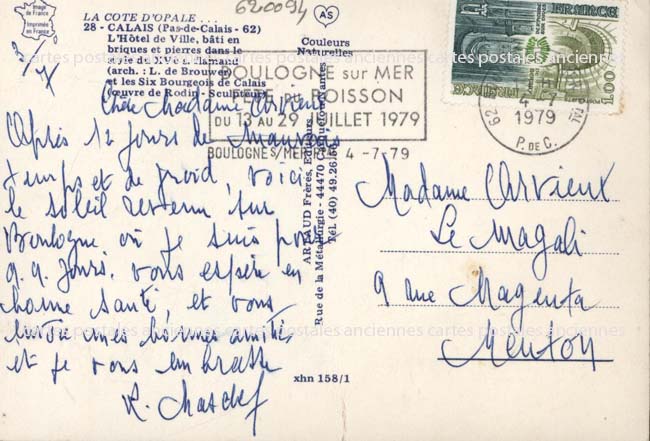 Image de France
Imprimée en France
LA COTE D'OPALE . . .
28 - CALAIS (Pas-de-Calais - 62)
L'Hôtel de Ville, bâti en
briques et pierres dans le
style du XVe s. flamand
(arch. : L. de Brouwer)
et les Six Bourgeois de Calais
(œuvre de Rodin - Sculpteur)
620094
AS
Couleurs
Naturelles
3/7
BOULOGNE sur MER
FETE DU POISSON
DU 13 AU 29 JUILLET 1979
BOULOGNE S/MER 4 -7-79
FRANCE
1.00
62
4 -7
1979
P. DE C.
Chère Madame Arvieux
Après 12 jours de mauvais
temps et de froid, voici
le soleil revenu sur
Boulogne où je suis pour
q.q. jours. vous espère en
bonne santé et vous
envoie mes bonnes amitiés
et je vous embrasse
ARTAUD Frères, Editeurs
Rue de la Métallurgie - 44470 Carquefou
Tél. (40) 49.26.50
xhn 158/1
Madame Arvieux
Le Magali
9 rue Magenta
Menton
cartes postales anciennes cartes postales anciennes cartes postales anciennes